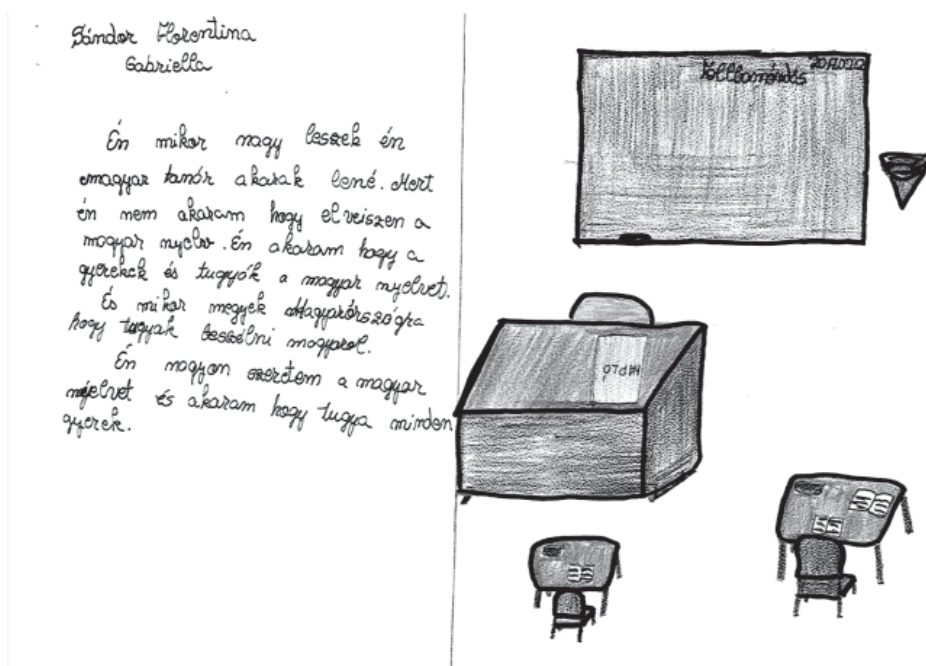 Sándor Florentina
Gabriella
Én mikor nagy leszek én
magyar tanór akarak lené. Mert
én nem akaram hogy elveiszen a
magyar nyelv. Én akaram hogy a
gyerekek és tugyók a magyar nyelvet.
És mikor megyek Magyarórszógra
hogy tugyak beszélni magyarol.
Én nagyon szeretem a magyar
nyelvet és akaram hogy tugya minden
gyerek.
Tollbamondás
NAPLÓ